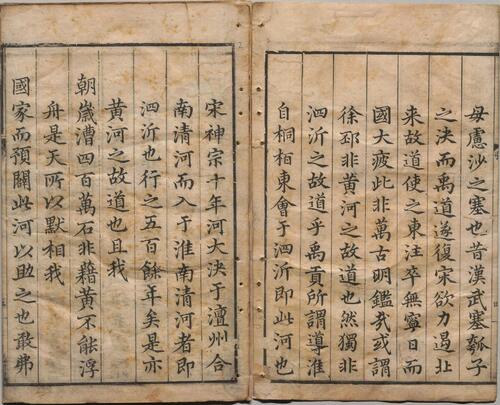 毋慮沙之塞也昔漢武塞瓠子
之決而禹道遂復宋欲力遏北
来故道使之東注卒無寧日而
國大疲此非萬古明鑑㢤或謂
徐邳非黄河之故道也然獨非
泗沂之故道乎禹貢所謂導淮
自桐柏東會于泗沂即此河也
宋神宗十年河大決于澶州合
南清河而入于淮南清河者即
泗沂也行之五百餘年矣是亦
黄河之故道也且我
朝歲漕四百萬石非藉黄不能浮
舟是天所以默相我
國家而預闢此河以助之也敢弗